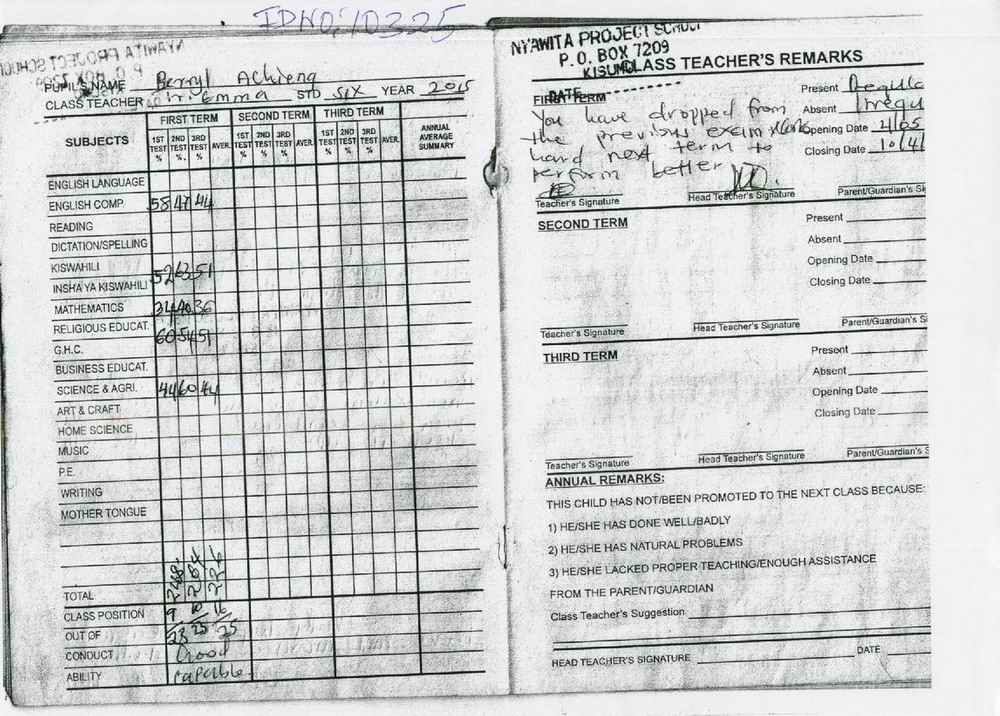 IDNO:10325
NYAWITA PROJECT SCHOOL
P. O. BOX 7209
KISUMU
PUPIL'S NAME Berryl Achieng
CLASS TEACHER Tr. Emma STD SIX YEAR 2015
SUBJECTS FIRST TERM SECOND TERM THIRD TERM ANNUAL AVERAGE SUMMARY
1ST TEST % 2ND TEST %. 3RD TEST % AVER. 1ST TEST % 2ND TEST % 3RD TEST % AVER. 1ST TEST % 2ND TEST % 3RD TEST % AVER.
ENGLISH LANGUAGE
ENGLISH COMP. 58 47 44
READING
DICTATION/SPELLING
KISWAHILI
INSHA YA KISWAHILI 52 63 51
MATHEMATICS 34 40 36
RELIGIOUS EDUCAT. 60 54 51
G.H.C.
BUSINESS EDUCAT.
SCIENCE & AGRI. 44 60 44
ART & CRAFT
HOME SCIENCE
MUSIC
P.E.
WRITING
MOTHER TONGUE
TOTAL 248 264 226
CLASS POSITION 9 10 16
OUT OF 23 25 25
CONDUCT Good
ABILITY capable
NYAWITA PROJECT SCHOOL
P. O. BOX 7209
KISUMU
CLASS TEACHER'S REMARKS
DATE
FIRST TERM
Present Regula
Absent Irregu
Opening Date
Closing Date
You have dropped from
the previous exam
hard next term to
perform better
Teacher's Signature Head Teacher's Signature Parent/Guardian's Si
SECOND TERM
Present
Absent
Opening Date
Closing Date
Teacher's Signature Head Teacher's Signature Parent/Guardian's Si
THIRD TERM
Present
Absent
Opening Date
Closing Date
Teacher's Signature Head Teacher's Signature Parent/Guardian's S
ANNUAL REMARKS:
THIS CHILD HAS NOT/BEEN PROMOTED TO THE NEXT CLASS BECAUSE:
1) HE/SHE HAS DONE WELL/BADLY
2) HE/SHE HAS NATURAL PROBLEMS
3) HE/SHE LACKED PROPER TEACHING/ENOUGH ASSISTANCE
FROM THE PARENT/GUARDIAN
Class Teacher's Suggestion
HEAD TEACHER'S SIGNATURE DATE